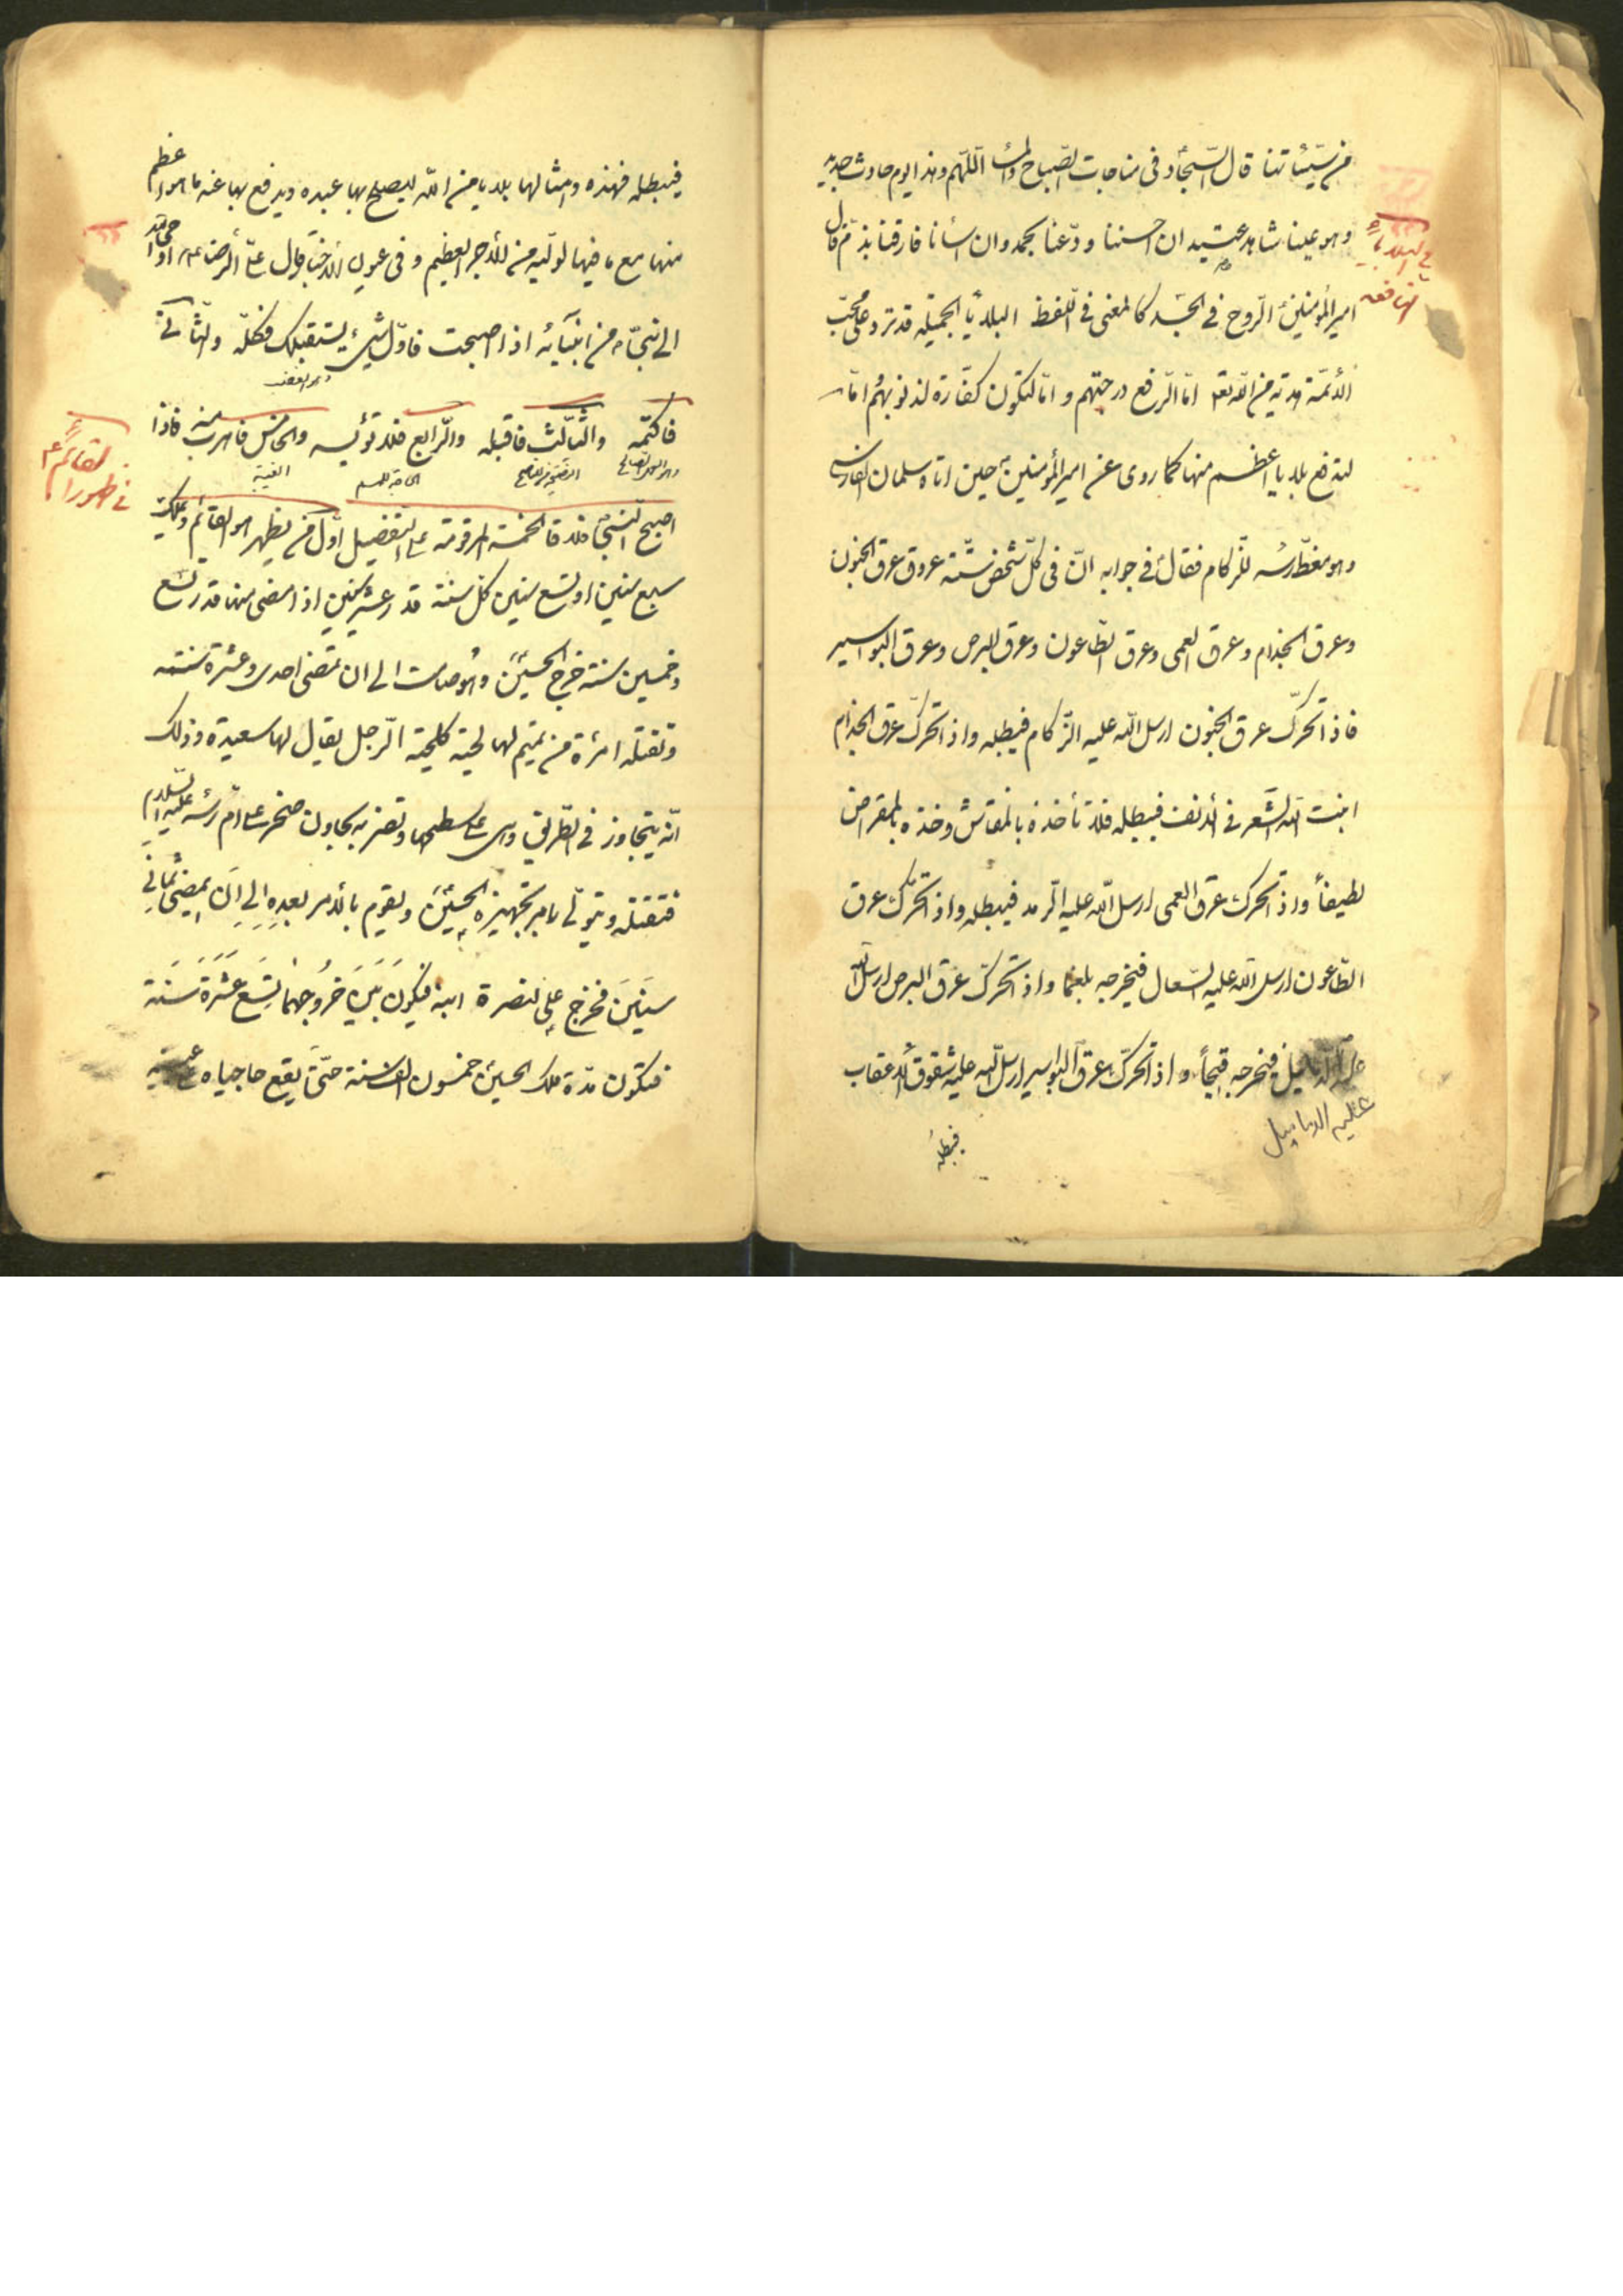 من سيّئاتنا قال السّجّاد في مناجات الصّباح والمساء اللّهم وهذا يوم حادث جديد
وهو علينا شاهد عتيد ان احسنا ودّعنا بحمد وان اسأنا فارقنا بذمّ قال
في البلايا
النافعه
امير المؤمنين الرّوح في الجسد كالمعنى في اللّفظ البلايا الجميله قد ترد على محبّ
الأئمّة هدية من الله تع امّا لرفع درجتهم وامّا لتكون كفّارة لذنوبهم امّا
لتدفع بلايا اعظم منها كما روى عن امير المؤمنين حين اتاه سلمان الفارسى
وهو مغطّ رأسه للزكام فقال في جوابه انّ في كلّ شخص ستّة عروق عرق الجنون
وعرق الجذام وعرق العمى وعرق الطّاعون وعرق البرص وعرق البواسير
فاذا تحرّك عرق الجنون ارسل الله عليه الزّكام فيبطله واذا تحرّك عرق الجذام
انبت الله الشّعر في الأنف فيبطله فلا تأخذه بالمنقاش وخذه بالمقراض
لطيفاً واذا تحرك عرق العمى ارسل الله عليه الرّمد فيبطله واذا تحرّك عرق
الطّاعون ارسل الله عليه السّعال فيخرجه بلغما واذا تحرّك عرق البرص ارسل الله
عليه الدّماميل فيخرجه قيحاً واذا تحرّك عرق البواسير ارسل الله عليه شقوق الأعقاب
عليه الدماميل
فيبطله
فيبطله فهذه وامثالها بلايا من الله ليصلح بها عبده ويدفع بها عنه ما هو اعظم
منها مع ما فيها لوليّه من الأجر العظيم وفي عيون الأخبار قال علىّ الرّضا ع اوحى الله
الى نبىّ من انبيائه اذا اصبحت فاوّل شىء يستقبلك فكله والثّانى
وهو الغضب
فاكتمه والثّالث فاقبله والرّابع فلا تؤيسه والخامس فاهرب منه فاذا
وهو العمل الصالح
الغيبة
في ظهور القائم ع
اصبح النّبىّ فلاقا الخمسة المرقومة على التفضيل اوّل من يظهر هو القائم ويملك
سبع سنين او تسع سنين كلّ سنة قدر عشر سنين اذا مضى منها قدر تسع
وخمسين سنة خرج الحسين وهو صامت الى ان تمضى احدى وعشرة سنته
وتقتله امرأة من تميم لها لحية كلحية الرّجل يقال لها سعيدة وذلك
انّه يتجاوز في الطّريق وهى على سطحها وتضربه بجاون صخر على امّ رأسه عليه السّلام
فتقتله ويتولّى امر تجهيزه الحسين ويقوم بالأمر بعده الى ان يمضى ثمانى
سنين فيخرج على لنصرة ابنه فيكون بين خروجهما تسع عشرة سنة
فتكون مدّة ملك الحسين خمسون الف سنة حتّى يقع حاجباه على عينيه